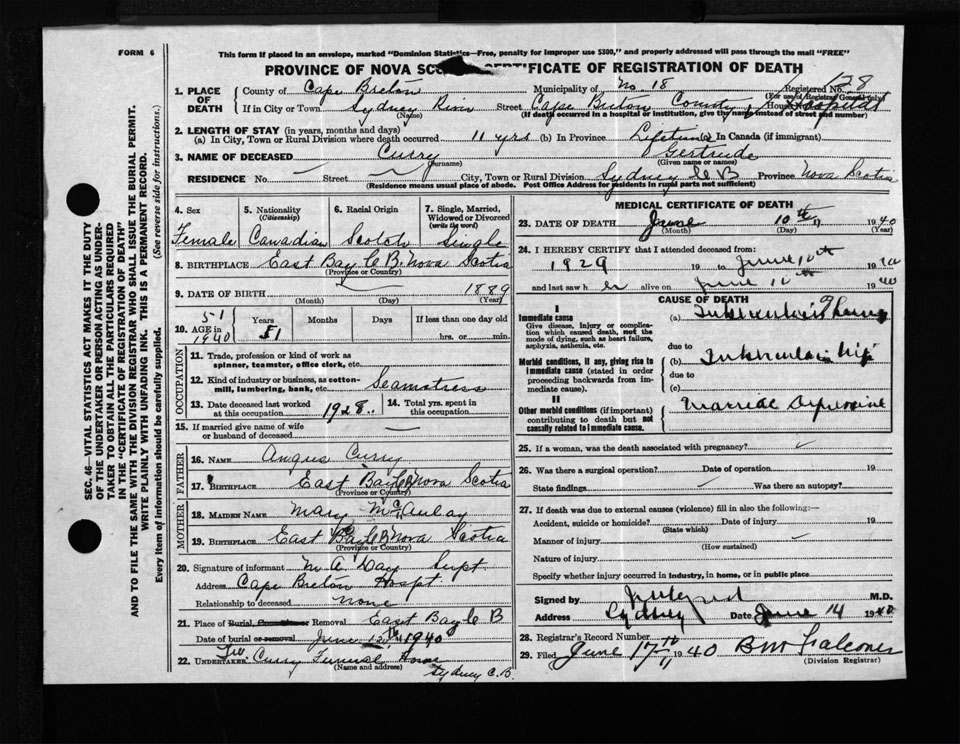 FORM 6
This form if placed in an envelope, marked "Dominion Statistics—Free, penalty for improper use $300," and properly addressed will pass through the mail "FREE"
PROVINCE OF NOVA SCOTIA CERTIFICATE OF REGISTRATION OF DEATH
SEC. 46—VITAL STATISTICS ACT MAKES IT THE DUTY
OF THE UNDERTAKER OR PERSON ACTING AS UNDER-
TAKER TO OBTAIN ALL THE PARTICULARS REQUIRED
IN THE "CERTIFICATE OF REGISTRATION OF DEATH"
AND TO FILE THE SAME WITH THE DIVISION REGISTRAR WHO SHALL ISSUE THE BURIAL PERMIT.
WRITE PLAINLY WITH UNFADING INK. THIS IS A PERMANENT RECORD.
Every item of information should be carefully supplied. (See reverse side for instructions.)
1. PLACE OF DEATH
County of Cape Breton Municipality of No. 18 Registered No. 128
(For use of Registrar General only)
If in City or Town Sydney River Street Cape Breton County Hospital House
(Name) (If death occurred in a hospital or institution, give the name instead of street and number)
2. LENGTH OF STAY (in years, months and days)
(a) In City, Town or Rural Division where death occurred 11 yrs (b) In Province Lifetime (c) In Canada (if immigrant)
3. NAME OF DECEASED Curry Gertrude
(Surname) (Given name or names)
RESIDENCE No. Street City, Town or Rural Division Sydney C B Province Nova Scotia
(Residence means usual place of abode. Post Office Address for residents in rural parts not sufficient)
4. Sex Female
5. Nationality (Citizenship) Canadian
6. Racial Origin Scotch
7. Single, Married, Widowed or Divorced (write the word) Single
8. BIRTHPLACE East Bay C.B. Nova Scotia
(Province or Country)
9. DATE OF BIRTH 1889
(Month) (Day) (Year)
10. AGE in 51 1940 Years 51 Months Days If less than one day old hrs. or min.
OCCUPATION
11. Trade, profession or kind of work as spinner, teamster, office clerk, etc.
12. Kind of industry or business, as cotton-mill, lumbering, bank, etc. Seamstress
13. Date deceased last worked at this occupation 1928
14. Total yrs. spent in this occupation
15. If married give name of wife or husband of deceased
FATHER
16. NAME Angus Curry
17. BIRTHPLACE East Bay C B Nova Scotia
(Province or Country)
MOTHER
18. MAIDEN NAME Mary McAulay
19. BIRTHPLACE East Bay C B Nova Scotia
(Province or Country)
20. Signature of informant M A Day Supt
Address Cape Breton Hospt
Relationship to deceased none
21. Place of Burial, Cremation or Removal East Bay C B
Date of burial or removal June 12th 1940
22. UNDERTAKER Curry Funeral Home
(Name and address)
Sydney C.B.
MEDICAL CERTIFICATE OF DEATH
23. DATE OF DEATH June 10th 1940
(Month) (Day) (Year)
24. I HEREBY CERTIFY that I attended deceased from:
1929 19 to June 10th 1940
and last saw her alive on June 10th 1940
CAUSE OF DEATH
I
Immediate cause
Give disease, injury or complication which caused death, not the mode of dying, such as heart failure, asphyxia, asthenia, etc.
(a) Tuberculosis of Lung
due to
Morbid conditions, if any, giving rise to immediate cause (stated in order proceeding backwards from immediate cause).
(b) Tuberculosis Hip
due to
(c)
II
Other morbid conditions (if important) contributing to death but not causally related to immediate cause.
25. If a woman, was the death associated with pregnancy?
26. Was there a surgical operation? Date of operation 19
State findings Was there an autopsy?
27. If death was due to external causes (violence) fill in also the following:—
Accident, suicide or homicide? Date of injury 19
(State which)
Manner of injury
(How sustained)
Nature of injury
Specify whether injury occurred in industry, in home, or in public place
Signed by M.D.
Address Sydney Date June 14 1940
28. Registrar's Record Number
29. Filed June 17th 1940 B M Falconer
(Division Registrar)